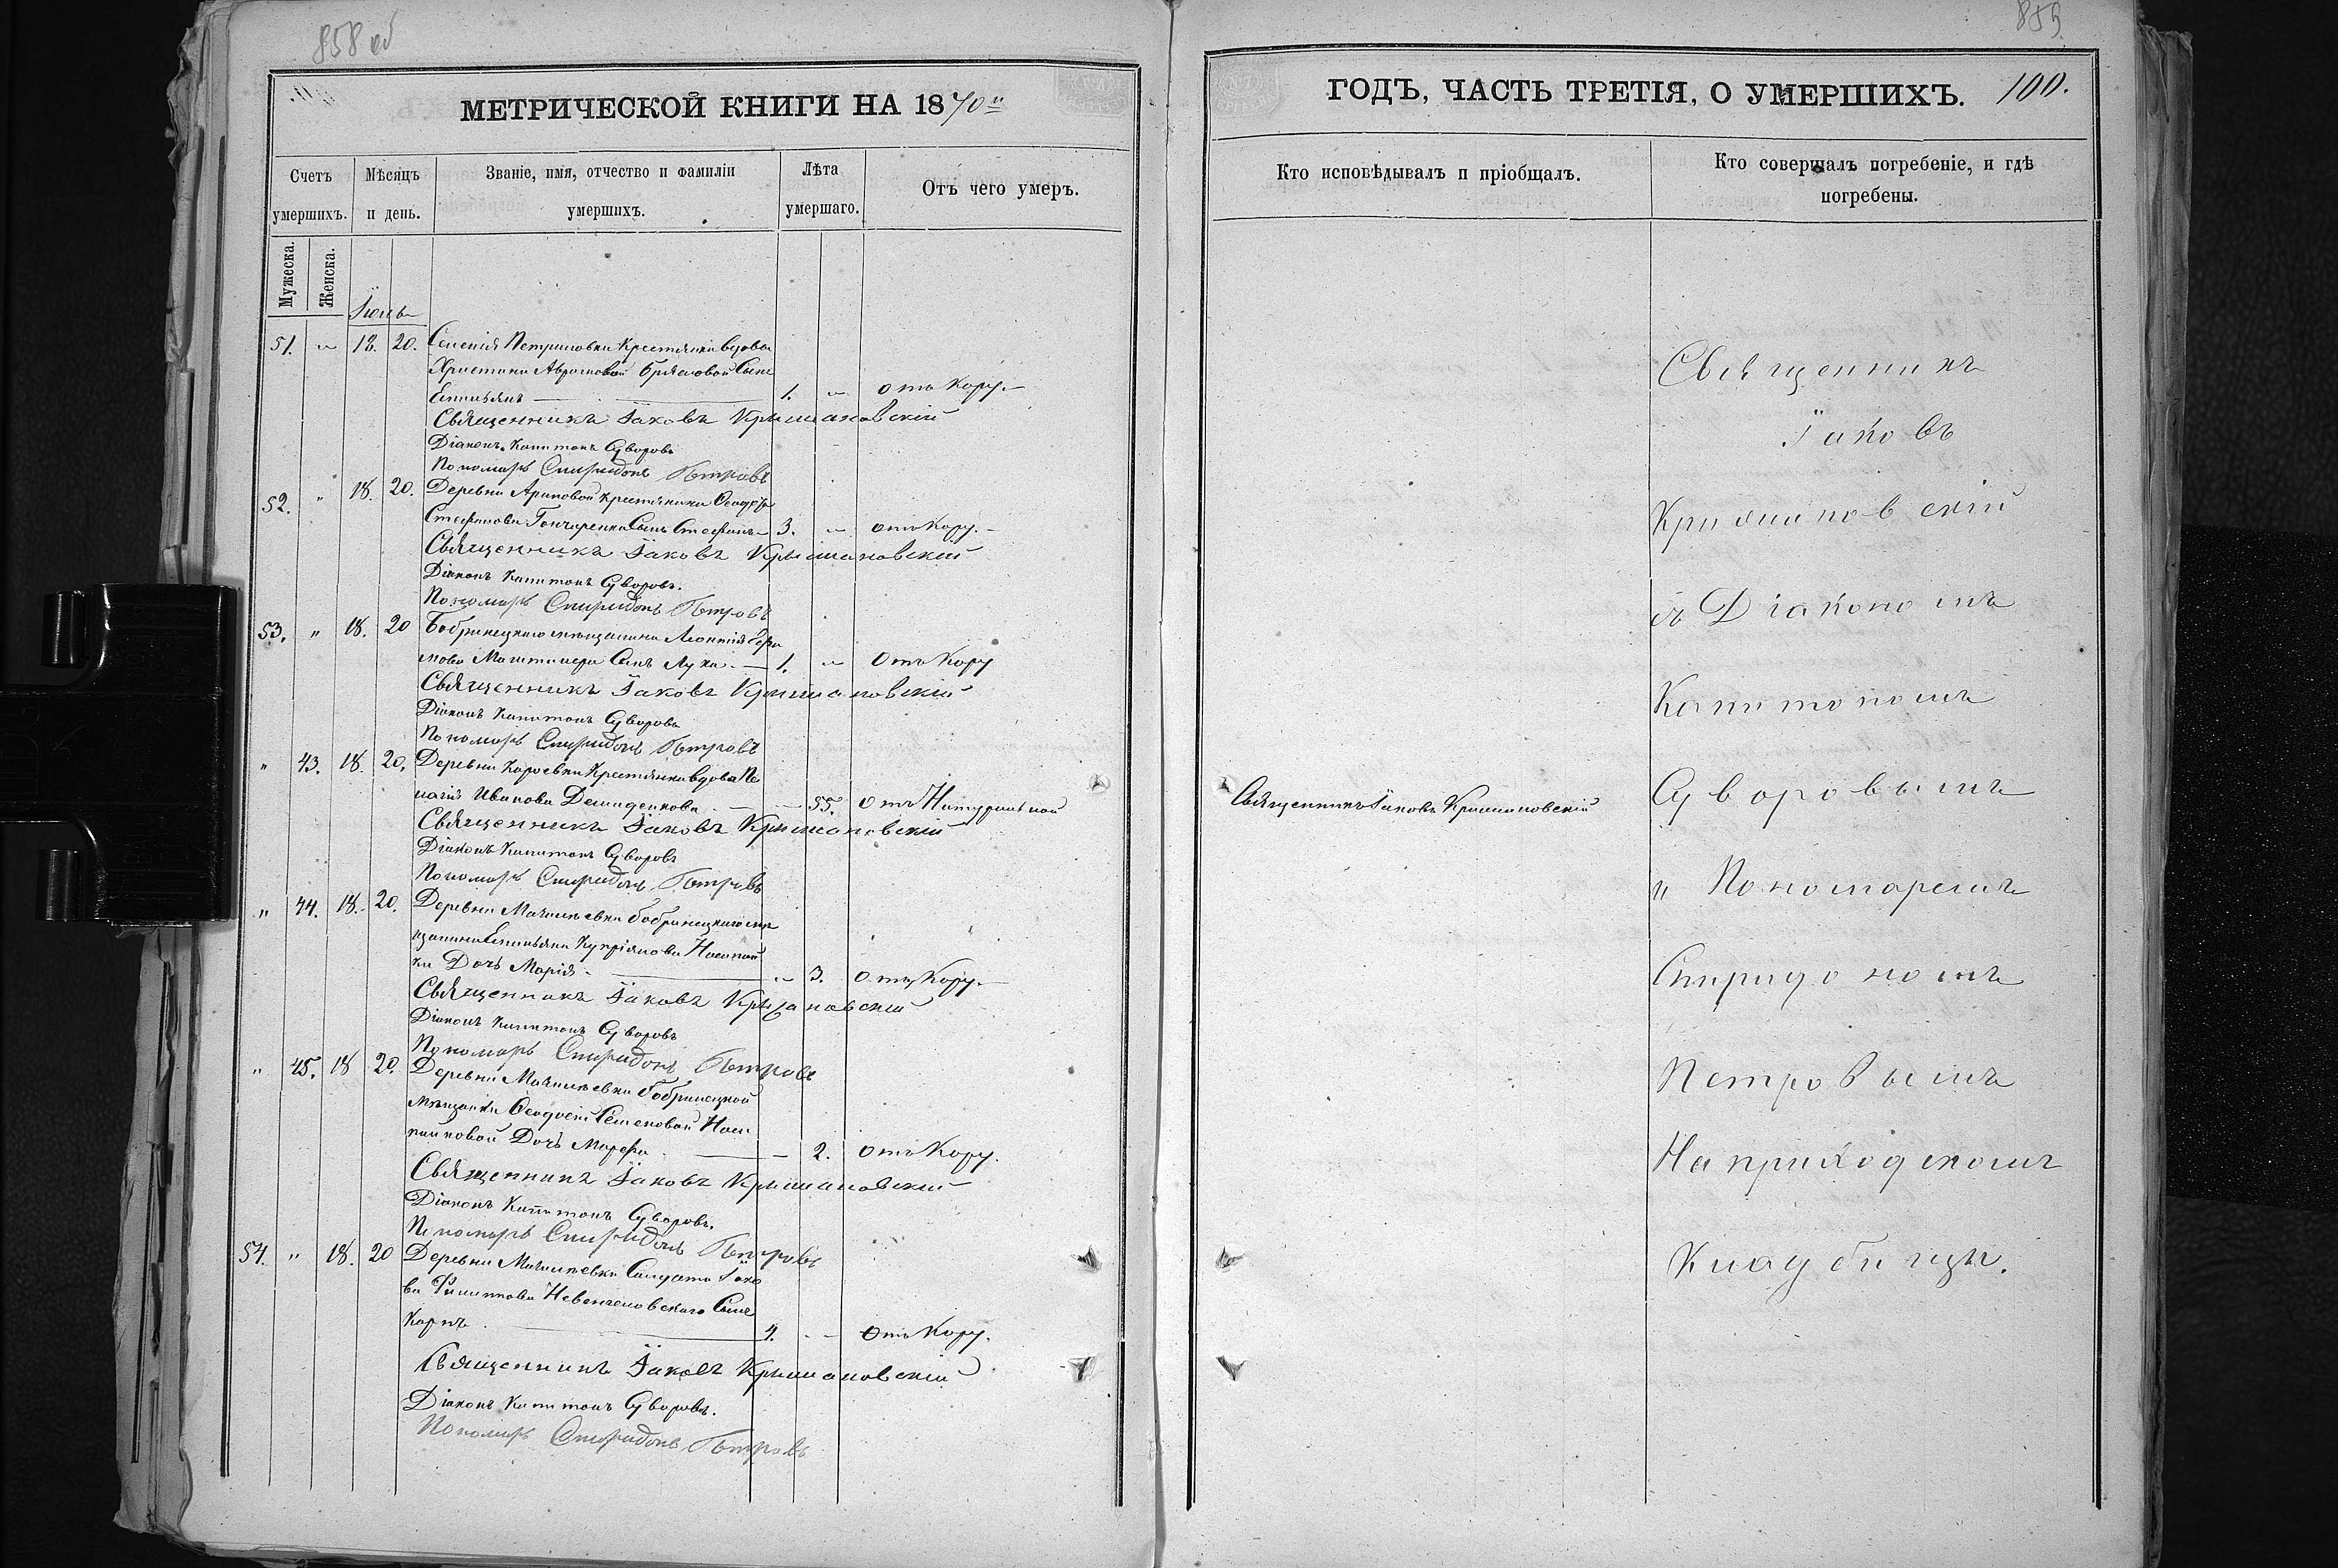 858 об
МЕТРИЧЕСКОЙ КНИГИ НА 1870й
Счетъ умершихъ.
Мѣсяцъ и день.
Званіе, имя, отчество и фамиліи умершихъ.
Лѣта умершаго.
Отъ чего умеръ.
Мужеска.
Женска.
Іюнь
51. " 18. 20. Селенія Петриковки Крестьянки вдовы
Христины Аврамовой Сынъ
Емиліанъ 1. " отъ Кору.
Священникъ Іаковъ Крыжановскій
Діаконъ Капитонъ Суворовъ
Пономарь Спиридонъ Петровъ
52. " 18. 20. Деревни Ариповой крестьянина Ѳеодора
Стефанова Гончаренка Сынъ Стефанъ 3. " отъ Кору.
Священникъ Іаковъ Крыжановскій
Діаконъ Капитонъ Суворовъ.
Пономарь Спиридонъ Петровъ
53. " 18. 20 Бобринецкаго мѣщанина Леонтія
Сынъ Лука. 1. " Отъ Кору
Священникъ Іаковъ Крыжановскій
Діаконъ Капитонъ Суворовъ
Пономарь Спиридонъ Петровъ
" 43. 18. 20. Деревни Караевки Крестьянка вдова Пе
лагія Иванова Демиденкова. 55. Отъ Натуральной
Священникъ Іаковъ Крыжановскій
Діаконъ Капитонъ Суворовъ
Пономарь Спиридонъ Петровъ
" 44. 18. 20. Деревни Бобринецкаго мѣ
щанина Емиліана Купріянова
ки Дочь Марія. " 3. отъ Кору.
Священникъ Іаковъ Крыжановскій
Діаконъ Капитонъ Суворовъ
Пономарь Спиридонъ Петровъ
" 45. 18 20. Деревни Бобринецкой
Мѣщанки Ѳеодосіи Семеновой
Дочь Марфа. 2. отъ Кору.
Священникъ Іаковъ Крыжановскій
Діаконъ Капитонъ Суворовъ.
Пономарь Спиридонъ Петровъ
54. " 18. 20 Деревни Солдата Іако
ва Филиппова Сынъ
Карпъ. 4. " Отъ Кору.
Священникъ Іаковъ Крыжановскій
Діаконъ Капитонъ Суворовъ.
Пономарь Спиридонъ Петровъ
859
ГОДЪ, ЧАСТЬ ТРЕТІЯ, О УМЕРШИХЪ. 100.
Кто исповѣдывалъ и пріобщалъ.
Кто совершалъ погребеніе, и гдѣ
погребены.
Священникъ Іаковъ Крыжановскій
Священникъ
Іаковъ
Крыжановскій
съ Діакономъ
Капитономъ
Суворовымъ
и Пономаремъ
Спиридономъ
Петровымъ
На приходскомъ
Кладбищи.